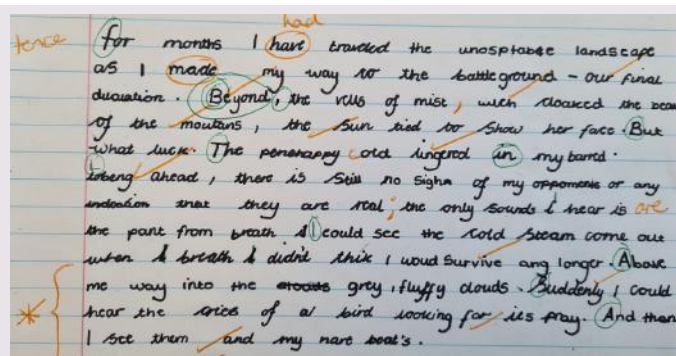 had
tence for months I have traveled the unosptabte landscape
as I made my way to the battleground - our final
duaration. Beyond, the veils of mist, wich cloaked the
of the moutans, the sun tied to show her face. But
what luck. The penehappy cold lingered in my
ahead, there is still no sighn of my oppoments or any
indication that they are real; the only sounds I hear is are
the pant from breath & I could see the cold steam come out
when I breath I didn't thik I woud survive ang longer. Above
me way into the grey, fluffy clouds. Suddenly I could
hear the cries of a bird looking for its pray. And then
I see them and my nare boat's.